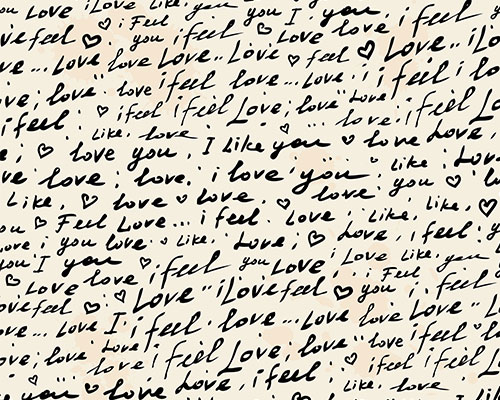 i Love Like, you you I you i feel
ove feel you i feel you Love love i feel you
ve... Love love Love.. Love feel Love.. iLo
ove; love love i feel love... Love; i i feel i lo
i feel. i feel i feel Love; love Love i feel L
Like, love
e; love you. I Like you love Love
love; love. i love you Like; Lov
Like, love love. love you
ou Feel Love... i feel. Love; Like, Like,
ove i you love Like, Love; Love. i feel; y
you I you i feel you Love i Love Like, you
Love love i Feel
ove feel Love.. iLove feel you i feel
ve... Love I i feel love... Love love Love..
ove; love Love i feel Love; love love i feel
i feel i feel L
e you love Love, i feel. Like, love